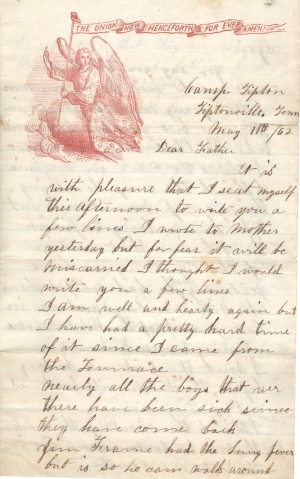 THE UNION NOW HENCEFORTH & FOR EVER AMEN!
Camp Tipton
Tiptonville, Tenn
May 11th /62
Dear Father
It is
with pleasure that I seat myself
this afternoon to write you a
few lines I wrote to Mother
yesterday but for fear it will be
miscarried I thought I would
write you a few lines
I am well and hearty again but
I have had a pretty hard time
of it since I came from
the
nearly all the boys that wer
there have been sick since
they have come back
Jim had the lung fever
but is so he cam walk around